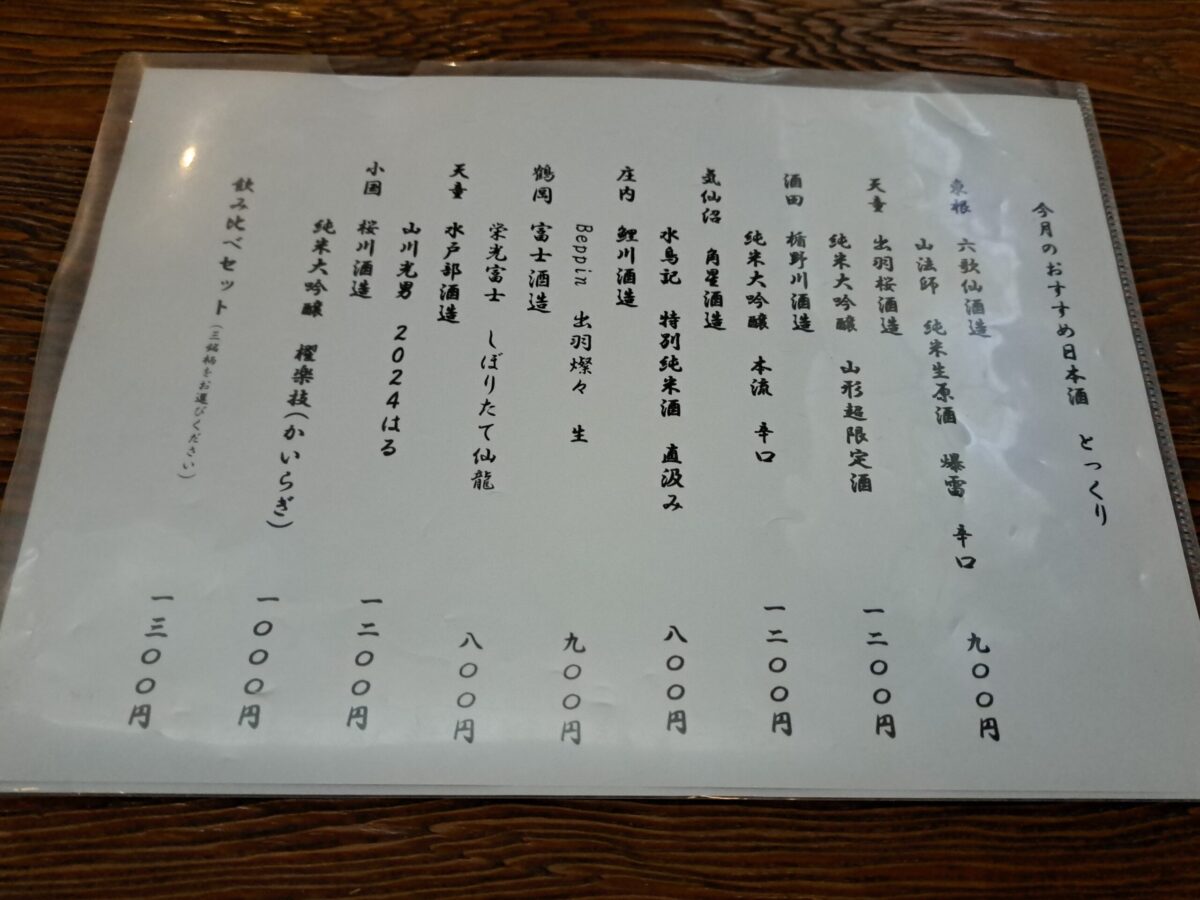 今月のおすすめ日本酒 とっくり
東根 六歌仙酒造
山法師 純米生原酒 爆雷 辛口 九〇〇円
天童 出羽桜酒造
純米大吟醸 山形超限定酒 一二〇〇円
酒田 楯野川酒造
純米大吟醸 本流 辛口 一二〇〇円
気仙沼 角星酒造
水鳥記 特別純米酒 直汲み 八〇〇円
庄内 鯉川酒造
Beppin 出羽燦々 生 九〇〇円
鶴岡 冨士酒造
栄光冨士 しぼりたて仙龍 八〇〇円
天童 水戸部酒造
山川光男 2024はる 一二〇〇円
小国 桜川酒造
純米大吟醸 櫂楽技(かいらぎ) 一〇〇〇円
飲み比べセット(三銘柄をお選びください) 一三〇〇円